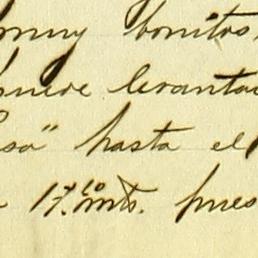 muy bonitos
puede levanta
sa" hasta el
17. mts. pues